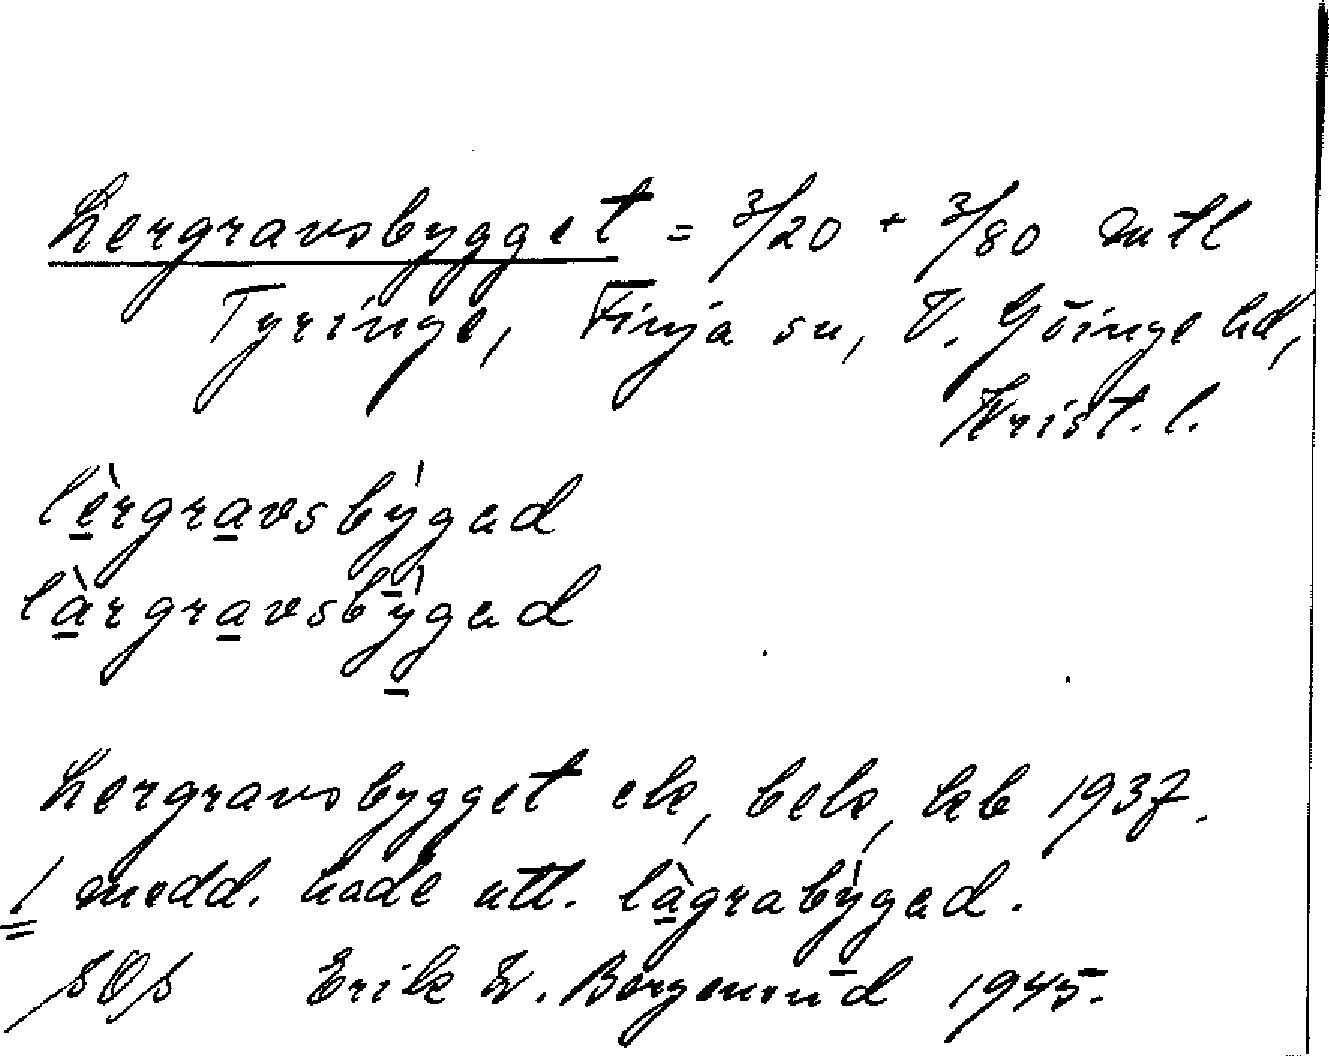 Lergravsbygget = 3/20 + 3/80 mtl
Tyringe, Finja sn, V. Göinge hd,
Krist. l.
lèrgravsbỳgad
làrgravsbỳgad
Lergravsbygget ek, belo, hb 1937.
1 medd. hade utt. làgrabỳgad.
SOS Erik W. Bergenwud 1945.